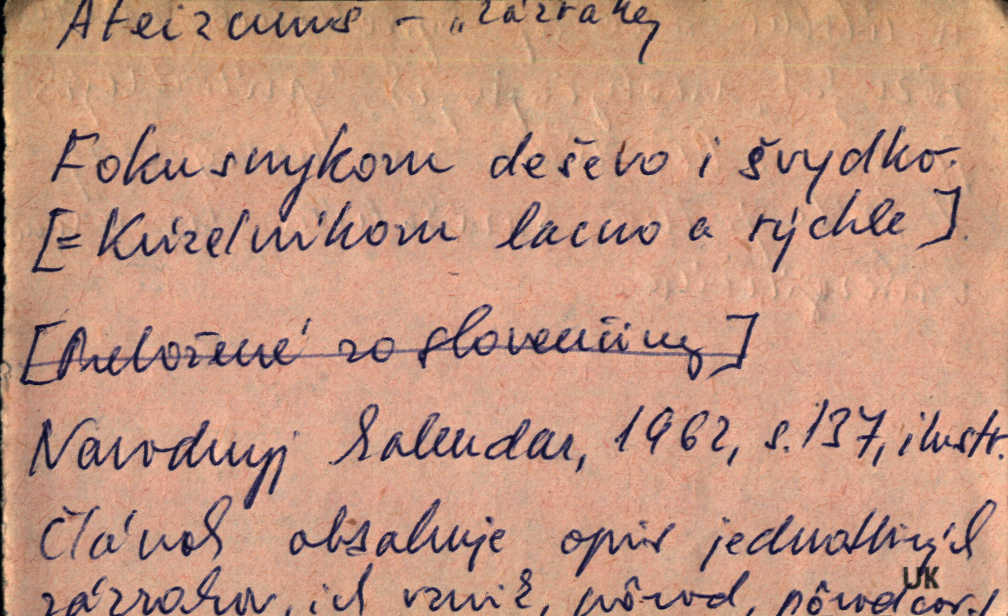 Ateizmus – „zázraky
Fokusnykom deševo i švydko.
[= Kúzelníkom lacno a rýchle].
[Preložené zo slovenčiny]
Narodnyj kalendar, 1962, s. 137, ilustr.
Článok obsahuje opis jednotlivých
zázrakov, ich vznik, pôvod, pôvodcov
UK